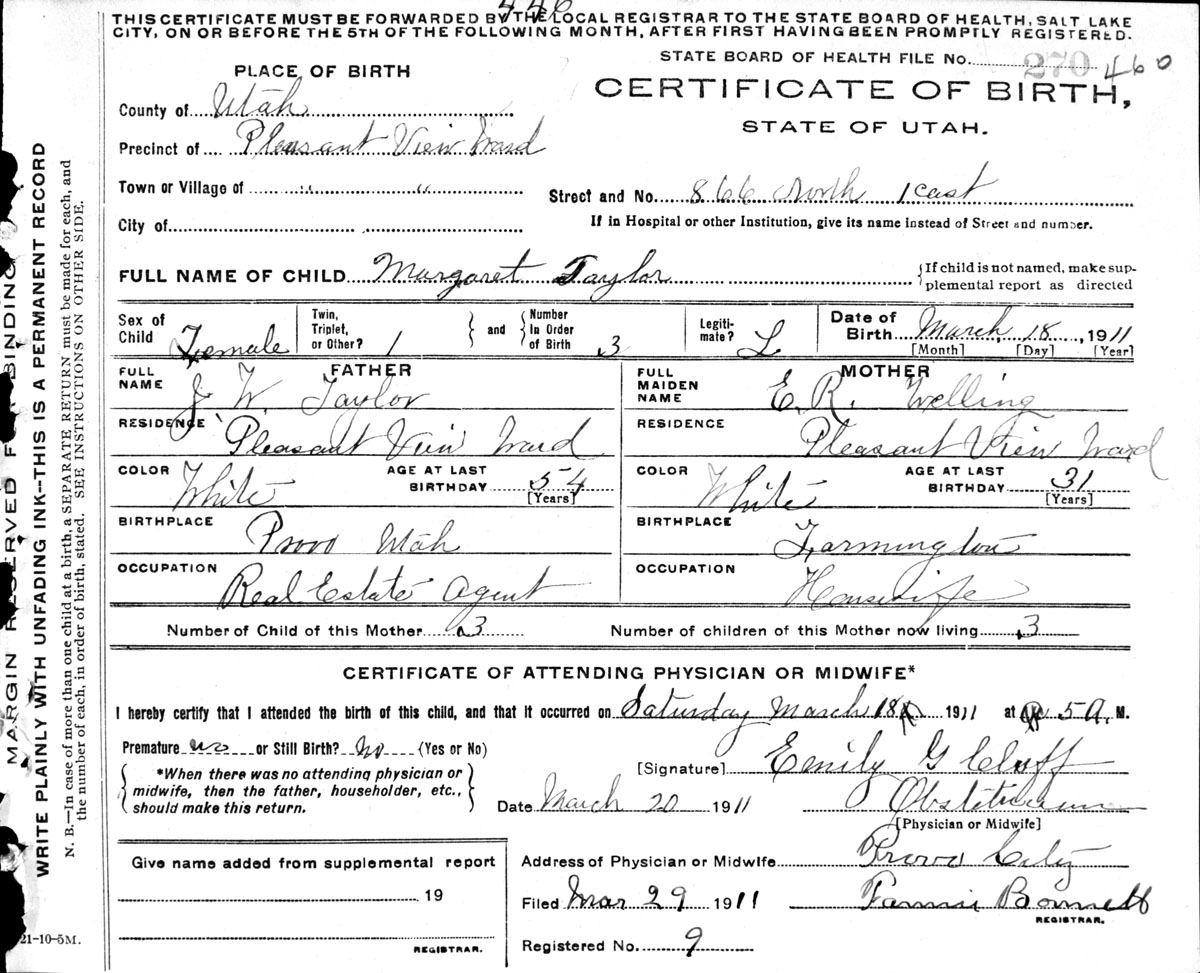 446
THIS CERTIFICATE MUST BE FORWARDED BY THE LOCAL REGISTRAR TO THE STATE BOARD OF HEALTH, SALT LAKE
CITY, ON OR BEFORE THE 5TH OF THE FOLLOWING MONTH, AFTER FIRST HAVING BEEN PROMPTLY REGISTERED.
STATE BOARD OF HEALTH FILE No. 270 460
PLACE OF BIRTH
CERTIFICATE OF BIRTH,
STATE OF UTAH.
County of Utah
Precinct of Pleasant View Ward
Town or Village of " "
Street and No. 866 North 1 East
City of
If in Hospital or other Institution, give its name instead of Street and number.
FULL NAME OF CHILD Margaret Taylor
{If child is not named, make sup-
plemental report as directed
Sex of Child Female
Twin, Triplet, or Other? 1
} and {
Number In Order of Birth 3
Legiti-mate? L
Date of Birth March 18, 1911
[Month] [Day] [Year]
FATHER
FULL NAME J. W. Taylor
RESIDENCE Pleasant View Ward
COLOR White
AGE AT LAST BIRTHDAY 54
[Years]
BIRTHPLACE Provo Utah
OCCUPATION Real Estate Agent
MOTHER
FULL MAIDEN NAME E. R. Welling
RESIDENCE Pleasant View Ward
COLOR White
AGE AT LAST BIRTHDAY 31
[Years]
BIRTHPLACE Farmington
OCCUPATION Housewife
Number of Child of this Mother 3
Number of children of this Mother now living 3
CERTIFICATE OF ATTENDING PHYSICIAN OR MIDWIFE*
I hereby certify that I attended the birth of this child, and that it occurred on Saturday March 18 1911 at 5 A. M.
Premature no or Still Birth? No (Yes or No)
{ *When there was no attending physician or
midwife, then the father, householder, etc.,
should make this return. }
[Signature] Emily G Cluff
Date March 20 1911
Obstetrician
[Physician or Midwife]
Give name added from supplemental report
19
REGISTRAR.
Address of Physician or Midwife Provo City
Filed Mar 29 1911
Fannie Bonnett
REGISTRAR.
Registered No. 9
21-10-5M.
MARGIN RESERVED FOR BINDING
WRITE PLAINLY WITH UNFADING INK--THIS IS A PERMANENT RECORD
N. B.—In case of more than one child at a birth, a SEPARATE RETURN must be made for each, and
the number of each, in order of birth, stated. SEE INSTRUCTIONS ON OTHER SIDE.